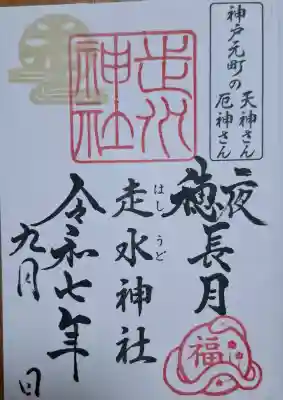 神戸元町の
天神さん
厄神さん
夜
穂
長月
走水神社
はし うど
令和七年
九月 日
走水
神社
福